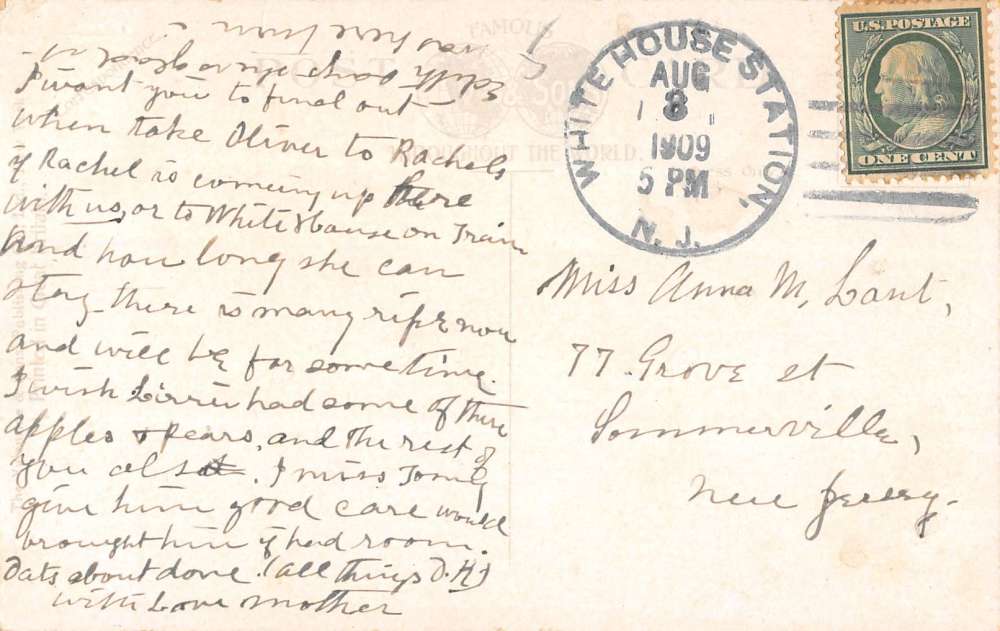 I want you to find out
when take Oliver to Rachels
if Rachel is coming up here
with us, or to White House on Train
and how long she can
stay there is many ripe now
and will be for some time.
I wish Lizzie had some of these
apples & pears, and the rest of
you also. I miss Tomy
give him good care would
brought him if had room.
Oats about done. (all things O.K.)
with Love mother
FAMOUS
POST CARD
THROUGHOUT THE WORLD.
WHITE HOUSE STATION, N. J.
AUG
8
1909
5 PM
U.S. POSTAGE
ONE CENT
Miss Anna M. Lant,
77 Grove st
Sommerville,
New Jersey.